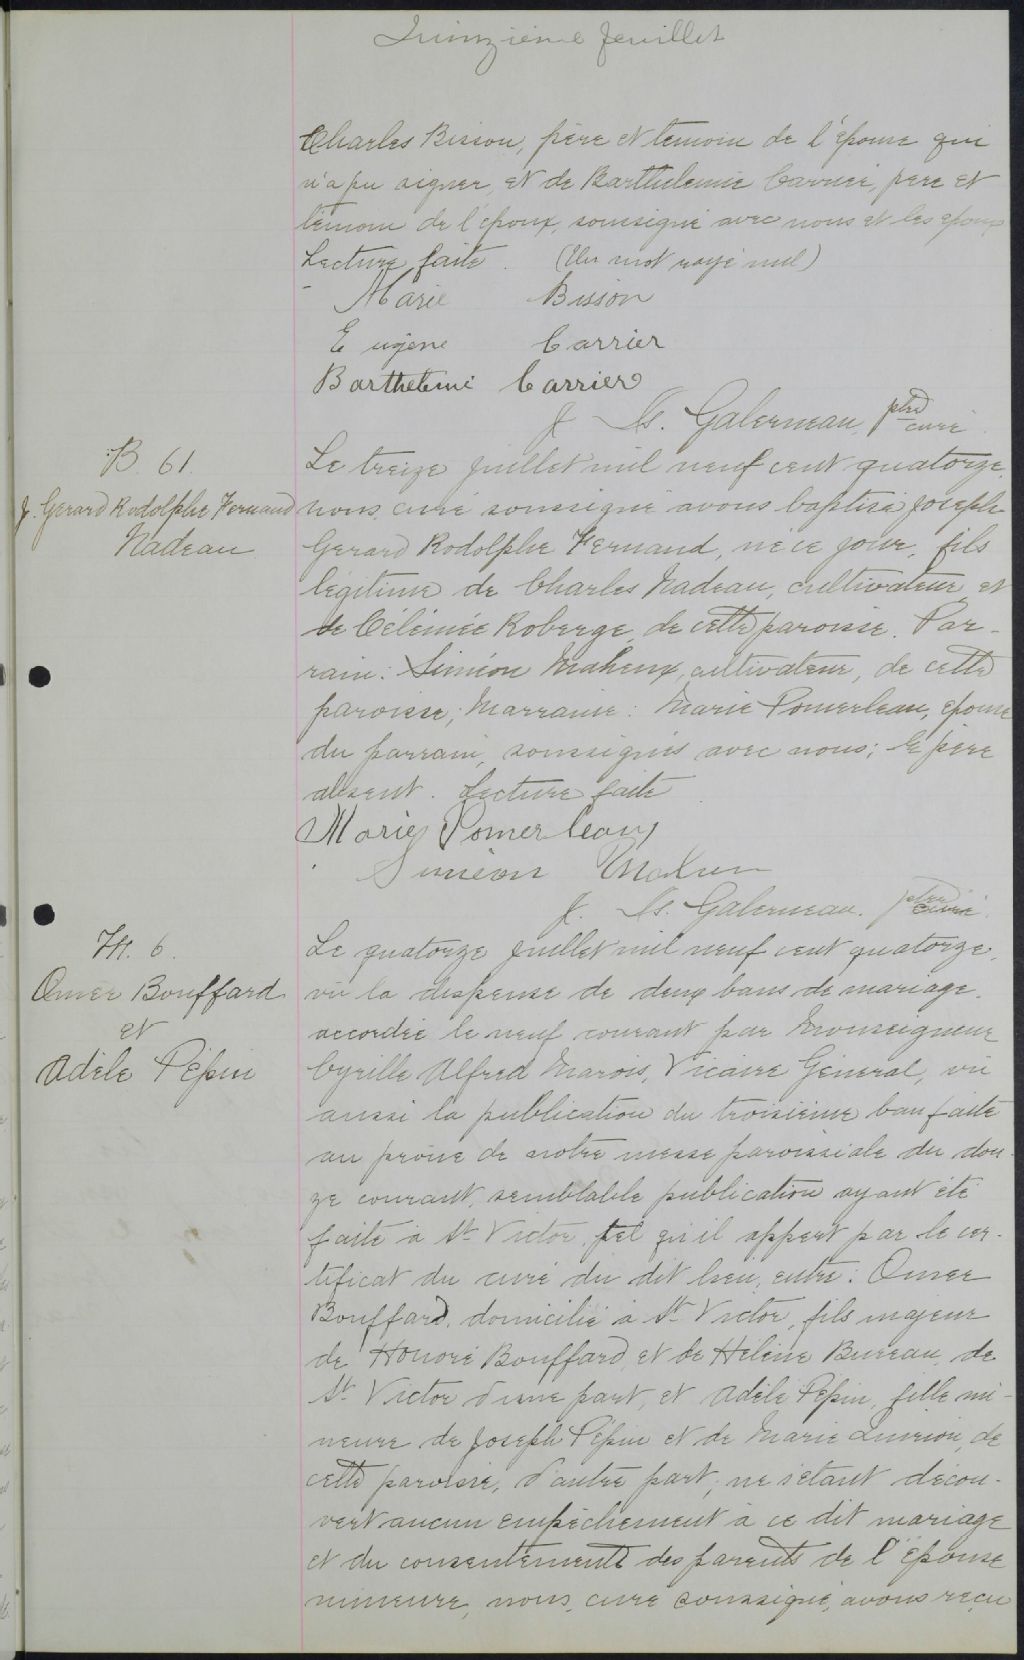 Quinzième feuillet
Charles Bisson, père et témoin de l'épouse qui
n'a pu signer, et de Barthelemie Carrier, père et
témoin de l'époux, soussigné avec nous et les époux
Lecture faite. (Un mot rayé nul)
Marie Bisson
Eugène Carrier
Barthelemi Carrier
J. Galerneau, ptre curé
B. 61.
J. Gerard Rodolphe Fernand
Nadeau
Le treize juillet mil neuf cent quatorze,
nous, curé soussigné avons baptisé Joseph
Gerard Rodolphe Fernand, né ce jour, fils
légitime de Charles Nadeau, cultivateur, et
de Célémée Roberge, de cette paroisse. Par-
rain: Siméon Maheux, cultivateur, de cette
paroisse; Marraine: Marie Pomerleau, épouse
du parrain, soussignés avec nous; le père
absent. Lecture faite
Marie Pomerleau
Siméon Maheu
J. Galerneau. ptre curé.
M. 6.
Omer Bouffard
et
Adèle Pépin
Le quatorze juillet mil neuf cent quatorze,
vu la dispense de deux bans de mariage
accordée le neuf courant par Monseigneur
Cyrille Alfred Marois, Vicaire Général, vu
aussi la publication du troisième ban faite
au prône de notre messe paroissiale du dou-
ze courant, semblable publication ayant été
faite à St Victor, tel qu'il appert par le cer-
tificat du curé du dit lieu, entre: Omer
Bouffard, domicilié à St Victor, fils majeur
de Honoré Bouffard, et de Hélène Bureau, de
St Victor d'une part, et Adèle Pépin, fille mi-
neure de Joseph Pépin et de Marie Quirion, de
cette paroisse, d'autre part; ne s'étant décou-
vert aucun empêchement à ce dit mariage
et du consentement des parents de l'épouse
mineure, nous, curé soussigné, avons reçu